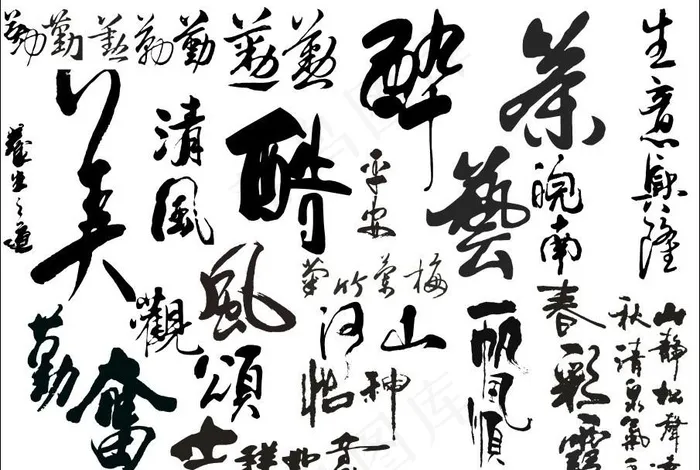 勤勤勤勤勤勤勤
醉
茶
生意興隆
美
清風
醋
平安
藝
皖南春
養生之道
菊竹蘭梅
風
觀
頌
河山
一帆風順
彩霞
山静松聲
秋清泉氣
怡神
勤奮